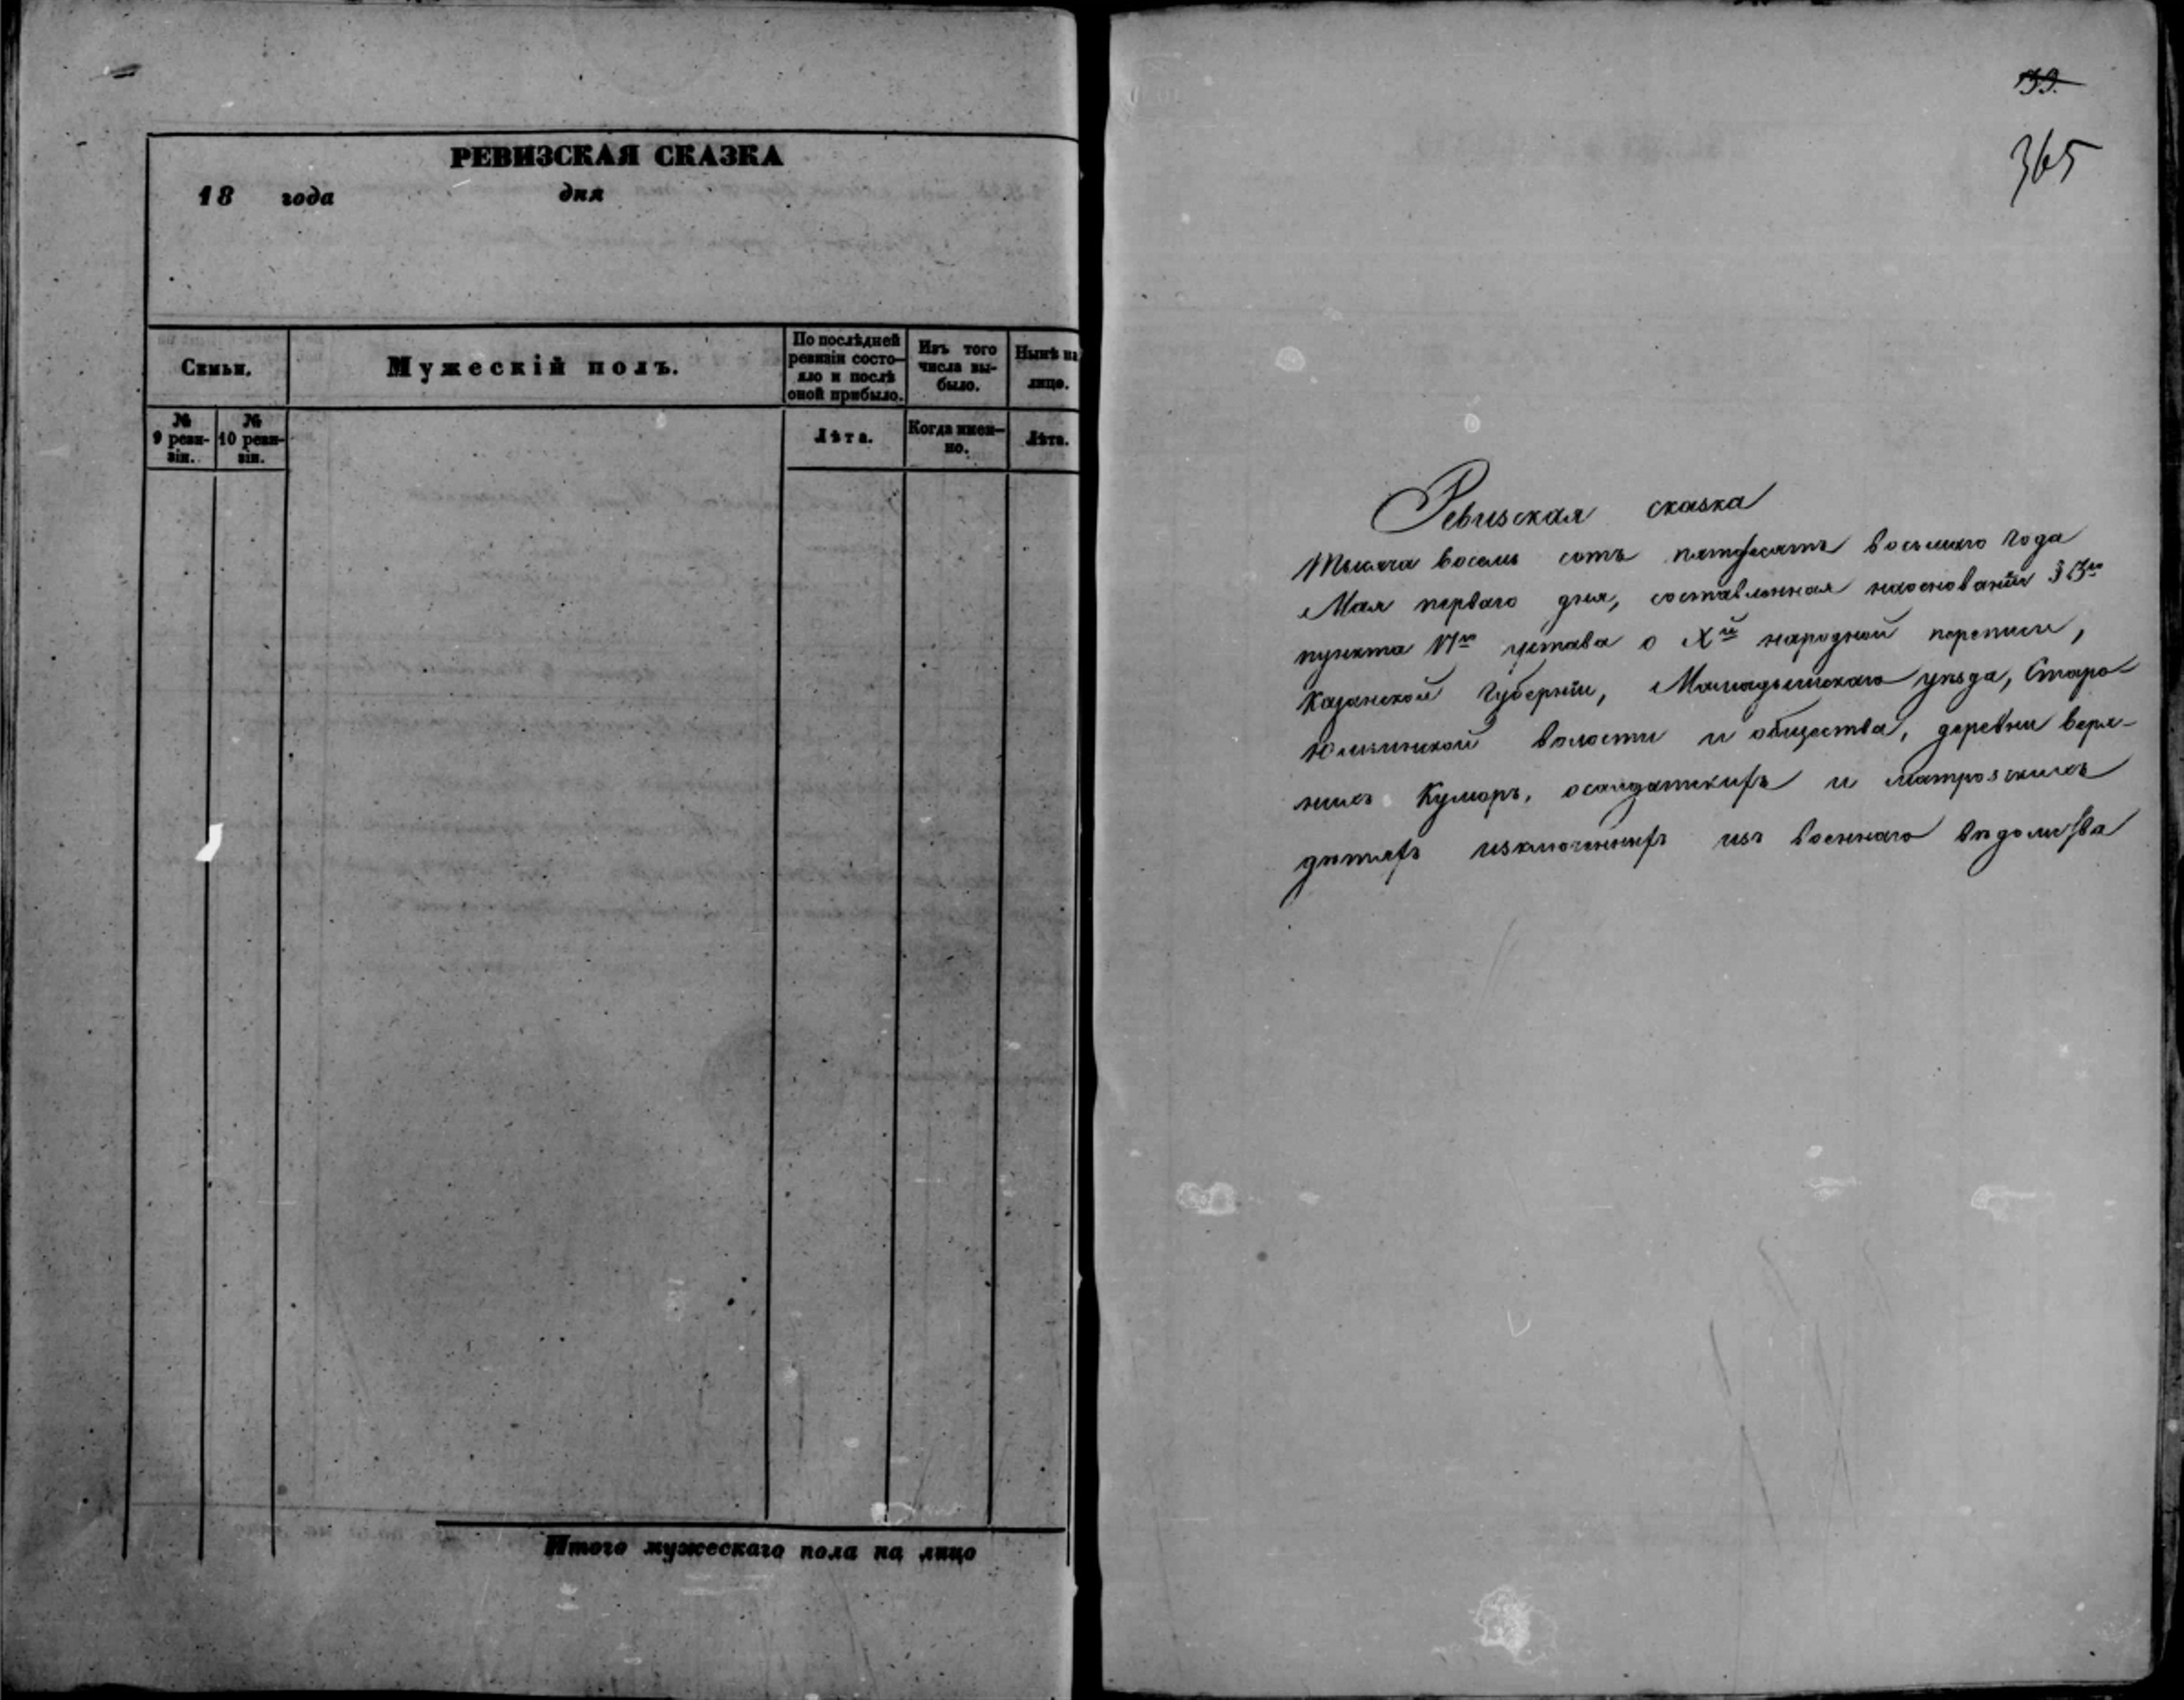 РЕВИЗСКАЯ СКАЗКА
18 года дня
Семьи.
Мужескій полъ.
По послѣдней
ревизіи состо-
яло и послѣ
оной прибыло.
Изъ того
числа вы-
было.
Нынѣ на
лицо.
№
9 реви-
зіи.
№
10 реви-
зіи.
Лѣта.
Когда имен-
но.
Лѣта.
Итого мужескаго пола на лицо
39.
365
Ревизская сказка
Тысяча восемь сотъ пятдесятъ восьмаго года
Мая перваго дня, составленная наоснованіи § 13го
пункта VIго устава о Xй народной переписи,
Казанской Губерніи, Мамадышскаго уѣзда, Старо-
юмьинской волости и общества, деревни верх-
нихъ Куморъ, осолдатскихъ и матрозскихъ
дѣтяхъ изключенныхъ изъ военнаго вѣдомства